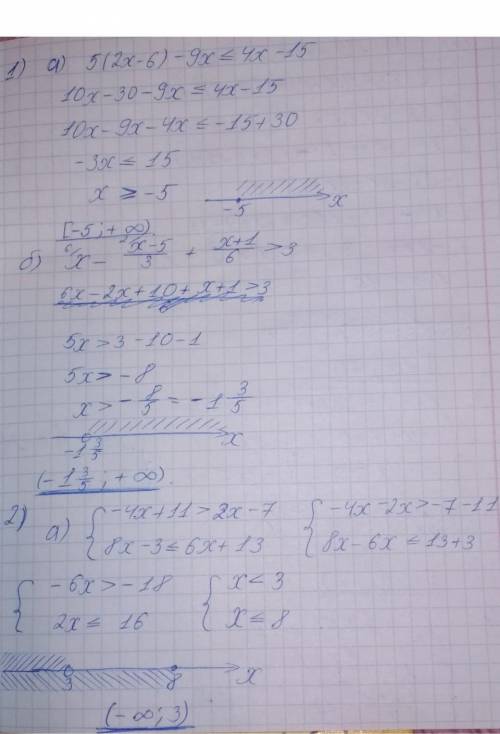 1) а) 5(2x-6)-9x≤4x-15
10x-30-9x≤4x-15
10x-9x-4x≤-15+30
-3x≤15
x≥-5
-5 x
[-5;+∞).
б) ⁶x - ²x-5/3 + x+1/6 >3
6x-2x+10+x+1>3
5x>3-10-1
5x>-8
x>-8/5=-1 3/5
-1 3/5 x
(-1 3/5; +∞).
2) а) {-4x+11>2x-7 {-4x-2x>-7-11
8x-3≤6x+13 8x-6x≤13+3
{-6x>-18 {x<3
2x≤16 x≤8
3 8 x
(-∞;3)